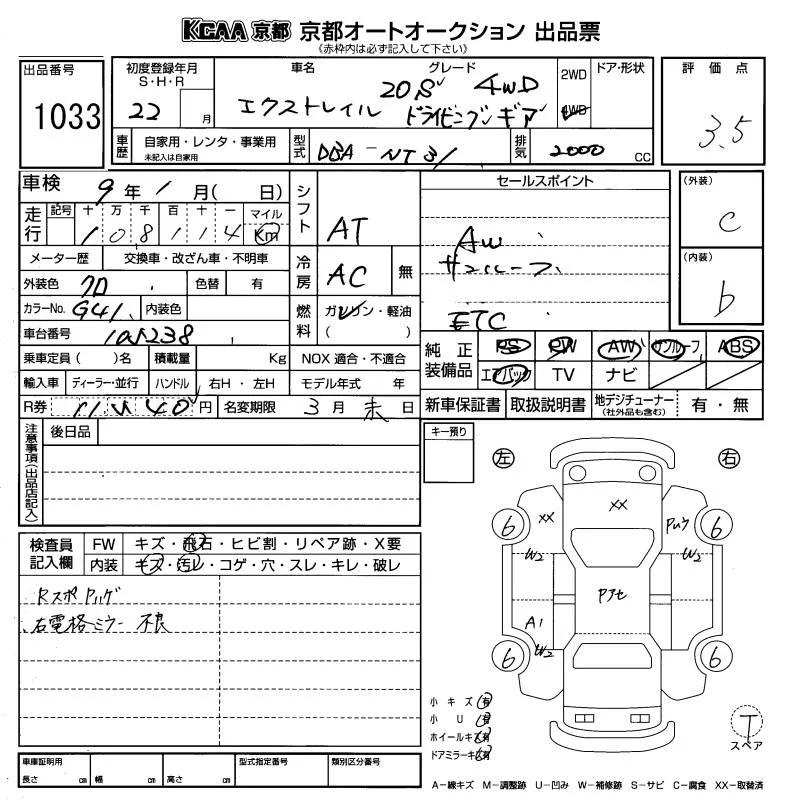 KCAA 京都 京都オートオークション 出品票
《赤枠内は必ず記入して下さい》
出品番号
1033
初度登録年月
S・H・R
22 月
車名
エクストレイル
グレード
20S 4WD
ドライビングギア
2WD
4WD
ドア・形状
評価点
3.5
車歴
自家用・レンタ・事業用
未記入は自家用
型式
DBA-NT31
排気
2000 CC
車検
9年1月( 日)
走行
記号 十 万 千 百 十 一 マイル
1 0 8 1 1 4 Km
メーター歴
交換車・改ざん車・不明車
外装色
クロ
色替
有
カラーNo.
G41
内装色
車台番号
乗車定員( )名
積載量
Kg
NOX 適合・不適合
輸入車
ディーラー・並行
ハンドル
右H・左H
モデル年式 年
R券
円
名変期限
3月末日
シフト
AT
冷房
AC
無
燃料
ガソリン・軽油
( )
セールスポイント
AW
サンルーフ
ETC
(外装)
C
(内装)
b
純正装備品
PS
PW
AW
サンルーフ
ABS
エアバック
TV
ナビ
新車保証書
取扱説明書
地デジチューナー
(社外品も含む)
有・無
注意事項(出品店記入)
後日品
キー預り
検査員
記入欄
FW
キズ・飛石・ヒビ割・リペア跡・X要
内装
キズ・汚レ・コゲ・穴・スレ・キレ・破レ
右電格ミラー 不良
左
右
XX
XX
6
6
W2
W2
Pアセ
A1
W2
6
6
小キズ 有
小U 有
ホイールキズ 有
ドアミラーキズ 有
T
スペア
車庫証明用
長さ cm
幅 cm
高さ cm
型式指定番号
類別区分番号
A-線キズ M-調整跡 U-凹み W-補修跡 S-サビ C-腐食 XX-取替済